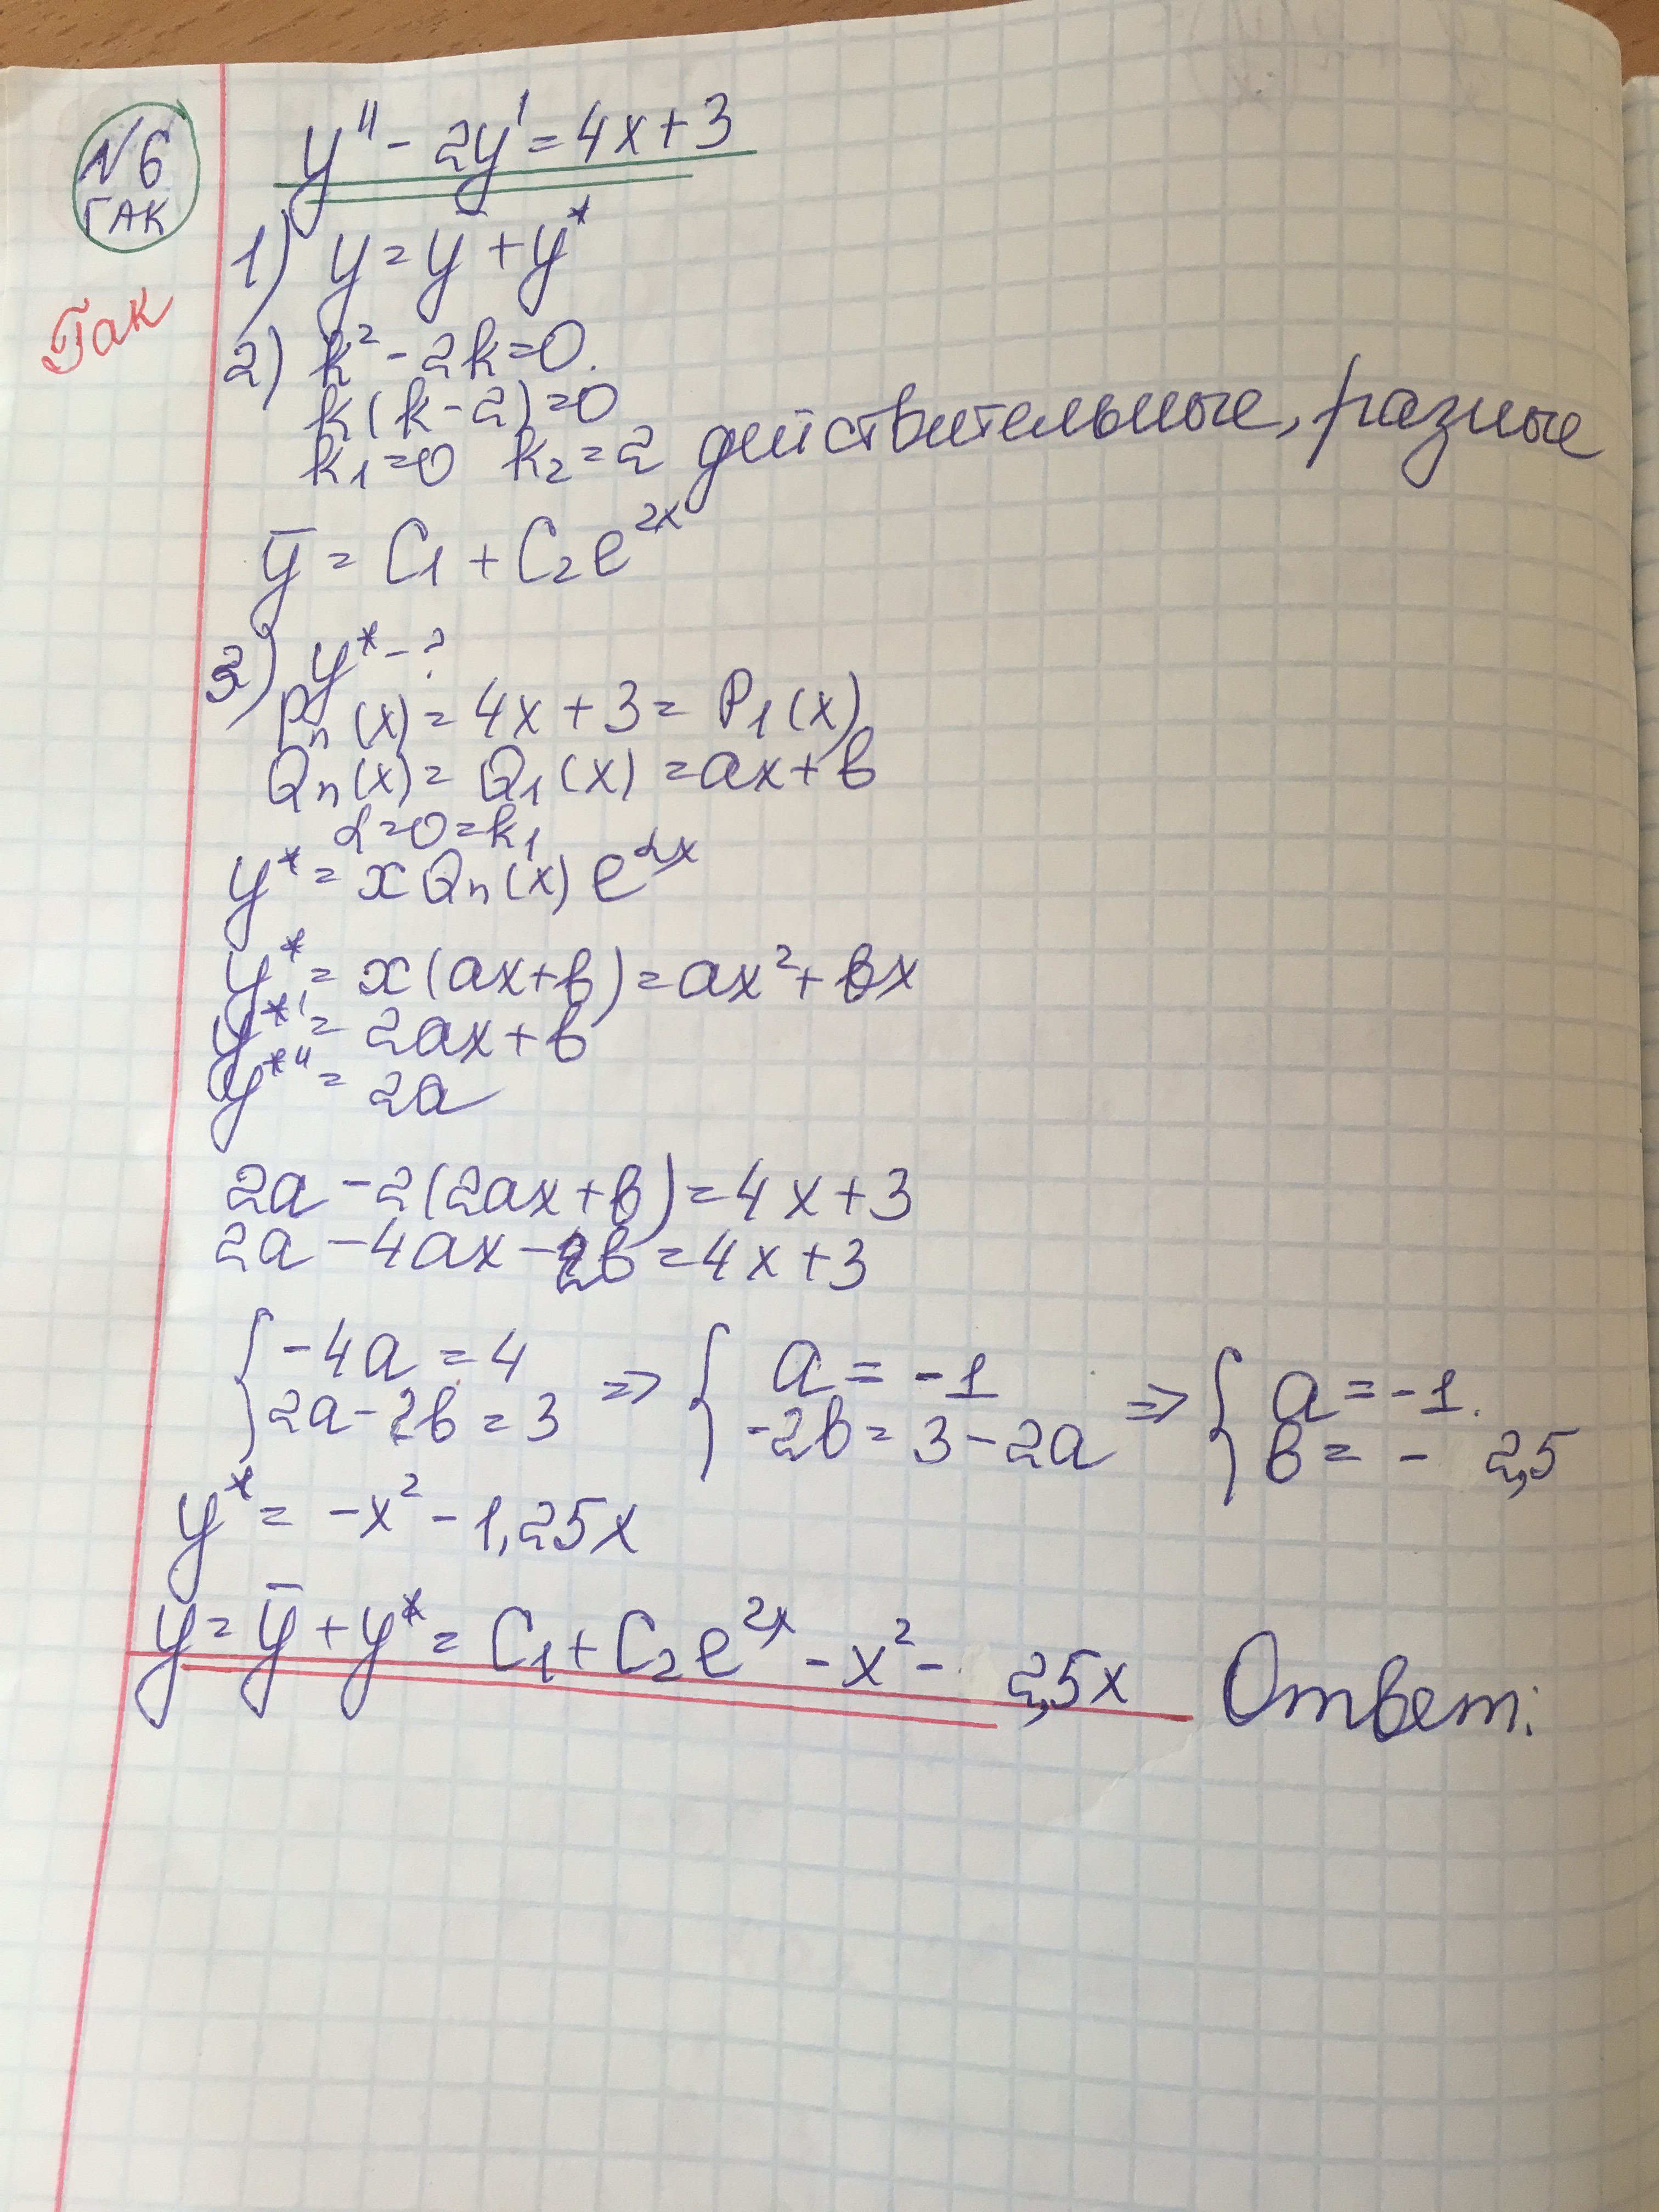 N6
ГАК
Гак
y'' - 2y' = 4x + 3
1) y = ȳ + y*
2) k² - 2k = 0.
k(k - 2) = 0
k₁ = 0 k₂ = 2 действительные, разные
ȳ = C₁ + C₂e²ˣ
3) y* - ?
Pₙ(x) = 4x + 3 = P₁(x)
Qₙ(x) = Q₁(x) = ax + в
α = 0 = k₁
y* = x Qₙ(x) e^αx
y* = x(ax + в) = ax² + вx
y*' = 2ax + в
y*'' = 2a
2a - 2(2ax + в) = 4x + 3
2a - 4ax - 2в = 4x + 3
{ -4a = 4 ⇒ { a = -1 ⇒ { a = -1.
2a - 2в = 3 -2в = 3 - 2a в = - 2,5
y* = -x² - 1,25x
y = ȳ + y* = C₁ + C₂e²ˣ - x² - 2,5x Ответ: